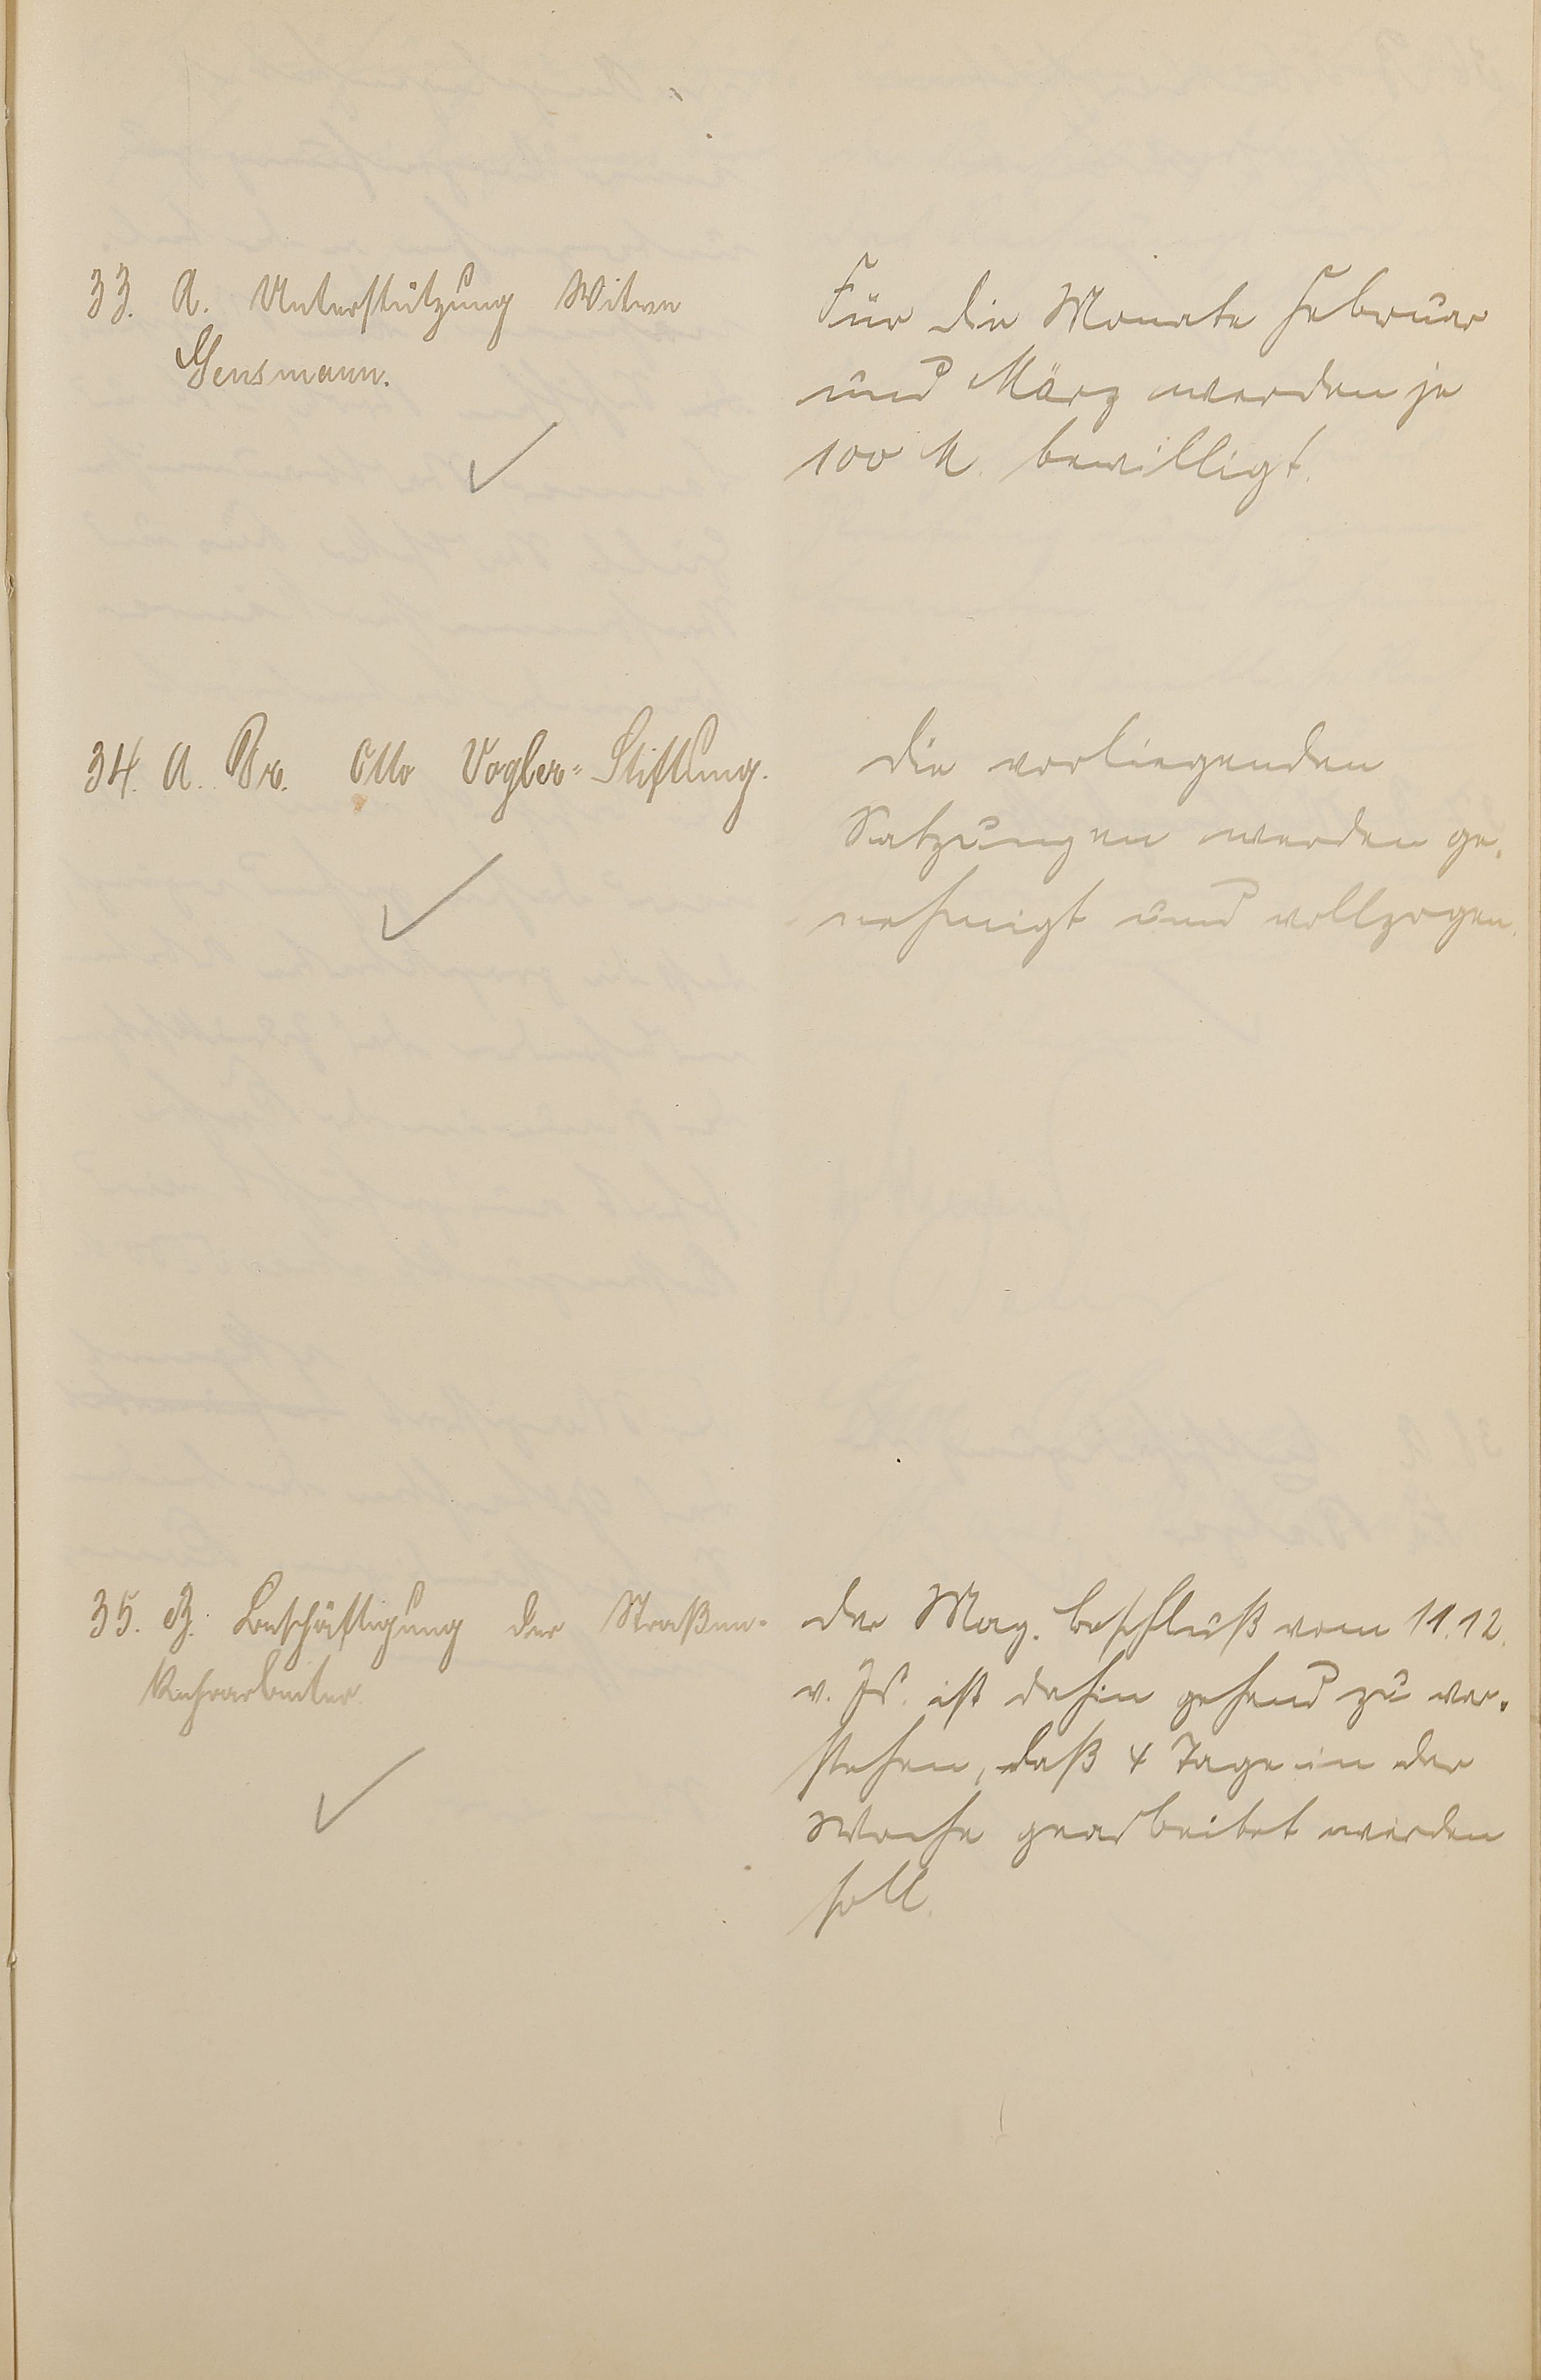 33. A. Unterstützung Witwe
Gensmann.
Für die Monate Februar
und März werden je
100 M. bewilligt.
34. A. Dr. Otto Vogler-Stiftung.
Die vorliegenden
Satzungen werden ge-
nehmigt und vollzogen.
35. B. Beschäftigung der Straßen-
Kehrarbeiter.
Der Mag. beschluß vom 11.12.
v. Js. ist dahin gehend zu ver-
stehen, daß 4 Tage in der
Woche gearbeitet werden
soll.